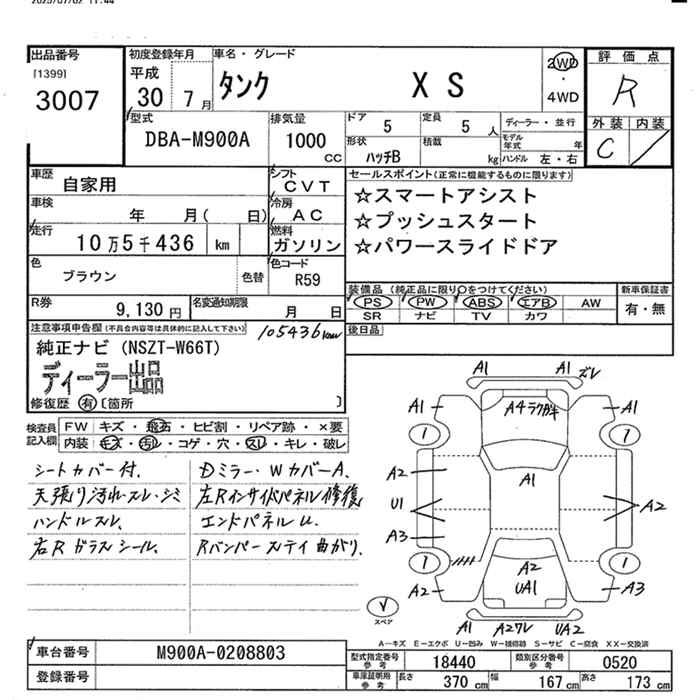 2025/07/02 11:44
出品番号
[1399]
3007
初度登録年月
平成
30年 7月
車名・グレード
タンク X S
2WD
・
4WD
評価点
R
外装 内装
C /
型式
DBA-M900A
排気量
1000
CC
ドア
5
定員
5 人
ディーラー・並行
形状
ハッチB
積載
kg
モデル年式 年
ハンドル 左・右
車歴
自家用
シフト
CVT
車検
年 月( 日)
冷房
AC
走行
10万5千436 km
燃料
ガソリン
色
ブラウン
色替
色コード
R59
R券
9,130 円
名変通知期限
月 日
セールスポイント(正常に機能するものに限ります)
☆スマートアシスト
☆プッシュスタート
☆パワースライドドア
装備品 (純正品に限り○をつけてください)
PS PW ABS エアB AW
SR ナビ TV カワ
新車保証書
有・無
後日品
注意事項申告欄(不具合内容等は具体的に記入して下さい)
105436km
純正ナビ (NSZT-W66T)
ディーラー出品
修復歴 有 〔箇所 〕
検査員記入欄
FW キズ・飛石・ヒビ割・リペア跡・×要
内装 キズ・汚レ・コゲ・穴・スレ・キレ・破レ
シートカバー付.
天張り汚れ・スレ・シミ
ハンドルスレ.
右Rガラスシール.
Dミラー・WカバーA.
左Rインサイドパネル修復
エンドパネルU.
Rバンパーステイ曲がり.
A1
ズレ
A1
A4
A1
1
1
A2
A1
U1
A2
A3
1
1
A2
A2
UA1
A3
A1
A2ズレ
UA2
スペア
A−キズ E−エクボ U−凹み W−補修跡 S−サビ C−腐食 XX−交換済
車台番号
M900A-0208803
登録番号
型式指定番号
参考
18440
類別区分番号
参考
0520
車庫証明用
参考
長さ
370 cm
幅
167 cm
高さ
173 cm